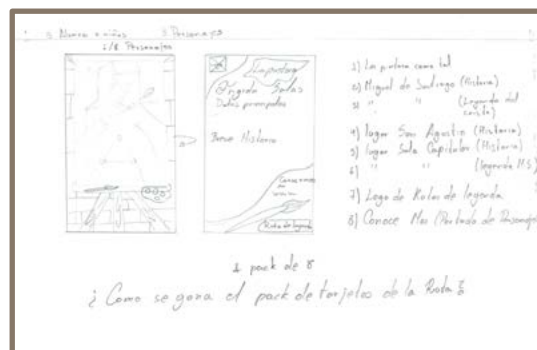 Personajes
1/8 Personajes
La pintora
Brígida Salas
Datos principales
Breve Historia
Conoce mas en
Rutas de leyenda
1) La pintora como tal
2) Miguel de Santiago (Historia)
3) " " (Leyenda del cristo)
4) lugar San Agustin (Historia)
5) lugar Sala Capitular (Historia)
6) " " (leyenda M.S)
7) Logo de Rutas de leyenda
8) Conoce Mas (Portada de Personajes
1 pack de 8
¿Como se gana el pack de tarjetas de la Ruta?